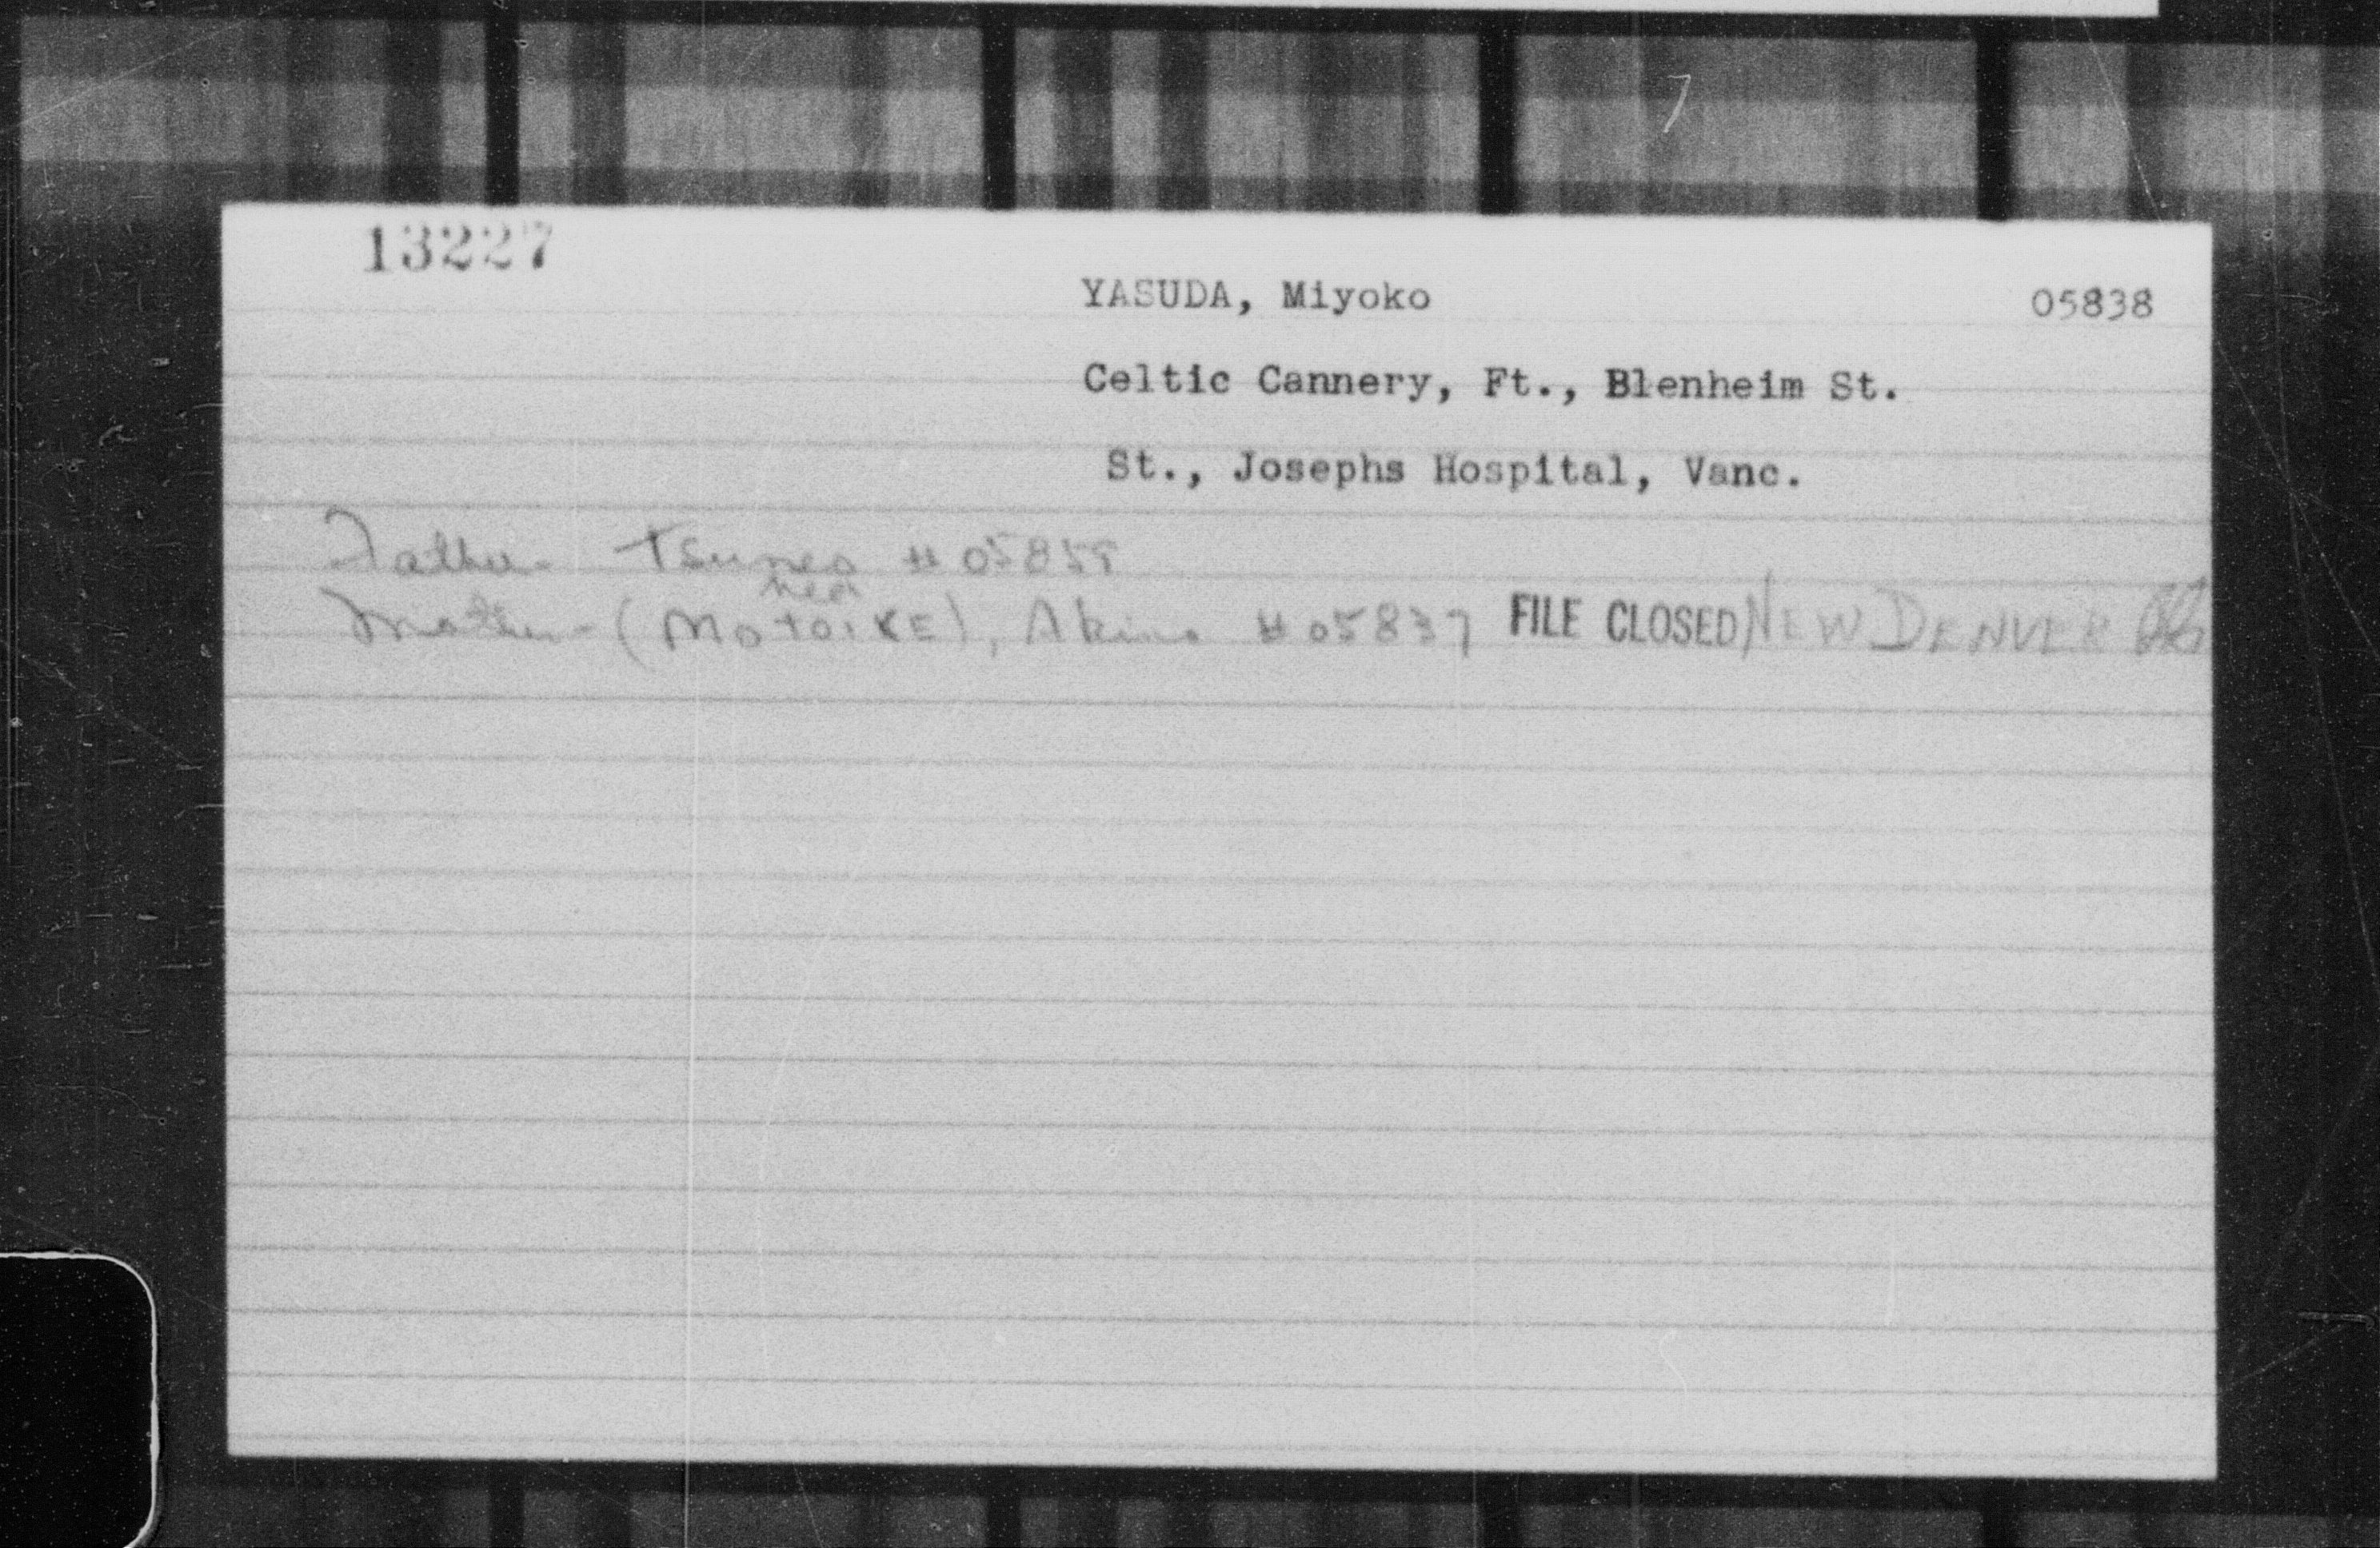 13227
YASUDA, Miyoko 05838
Celtic Cannery, Ft., Blenheim St.
St., Josephs Hospital, Vanc.
Father - Tsuneo #
nea
Mother - (MOTOIKE), #05837 FILE CLOSED NEW DENVER